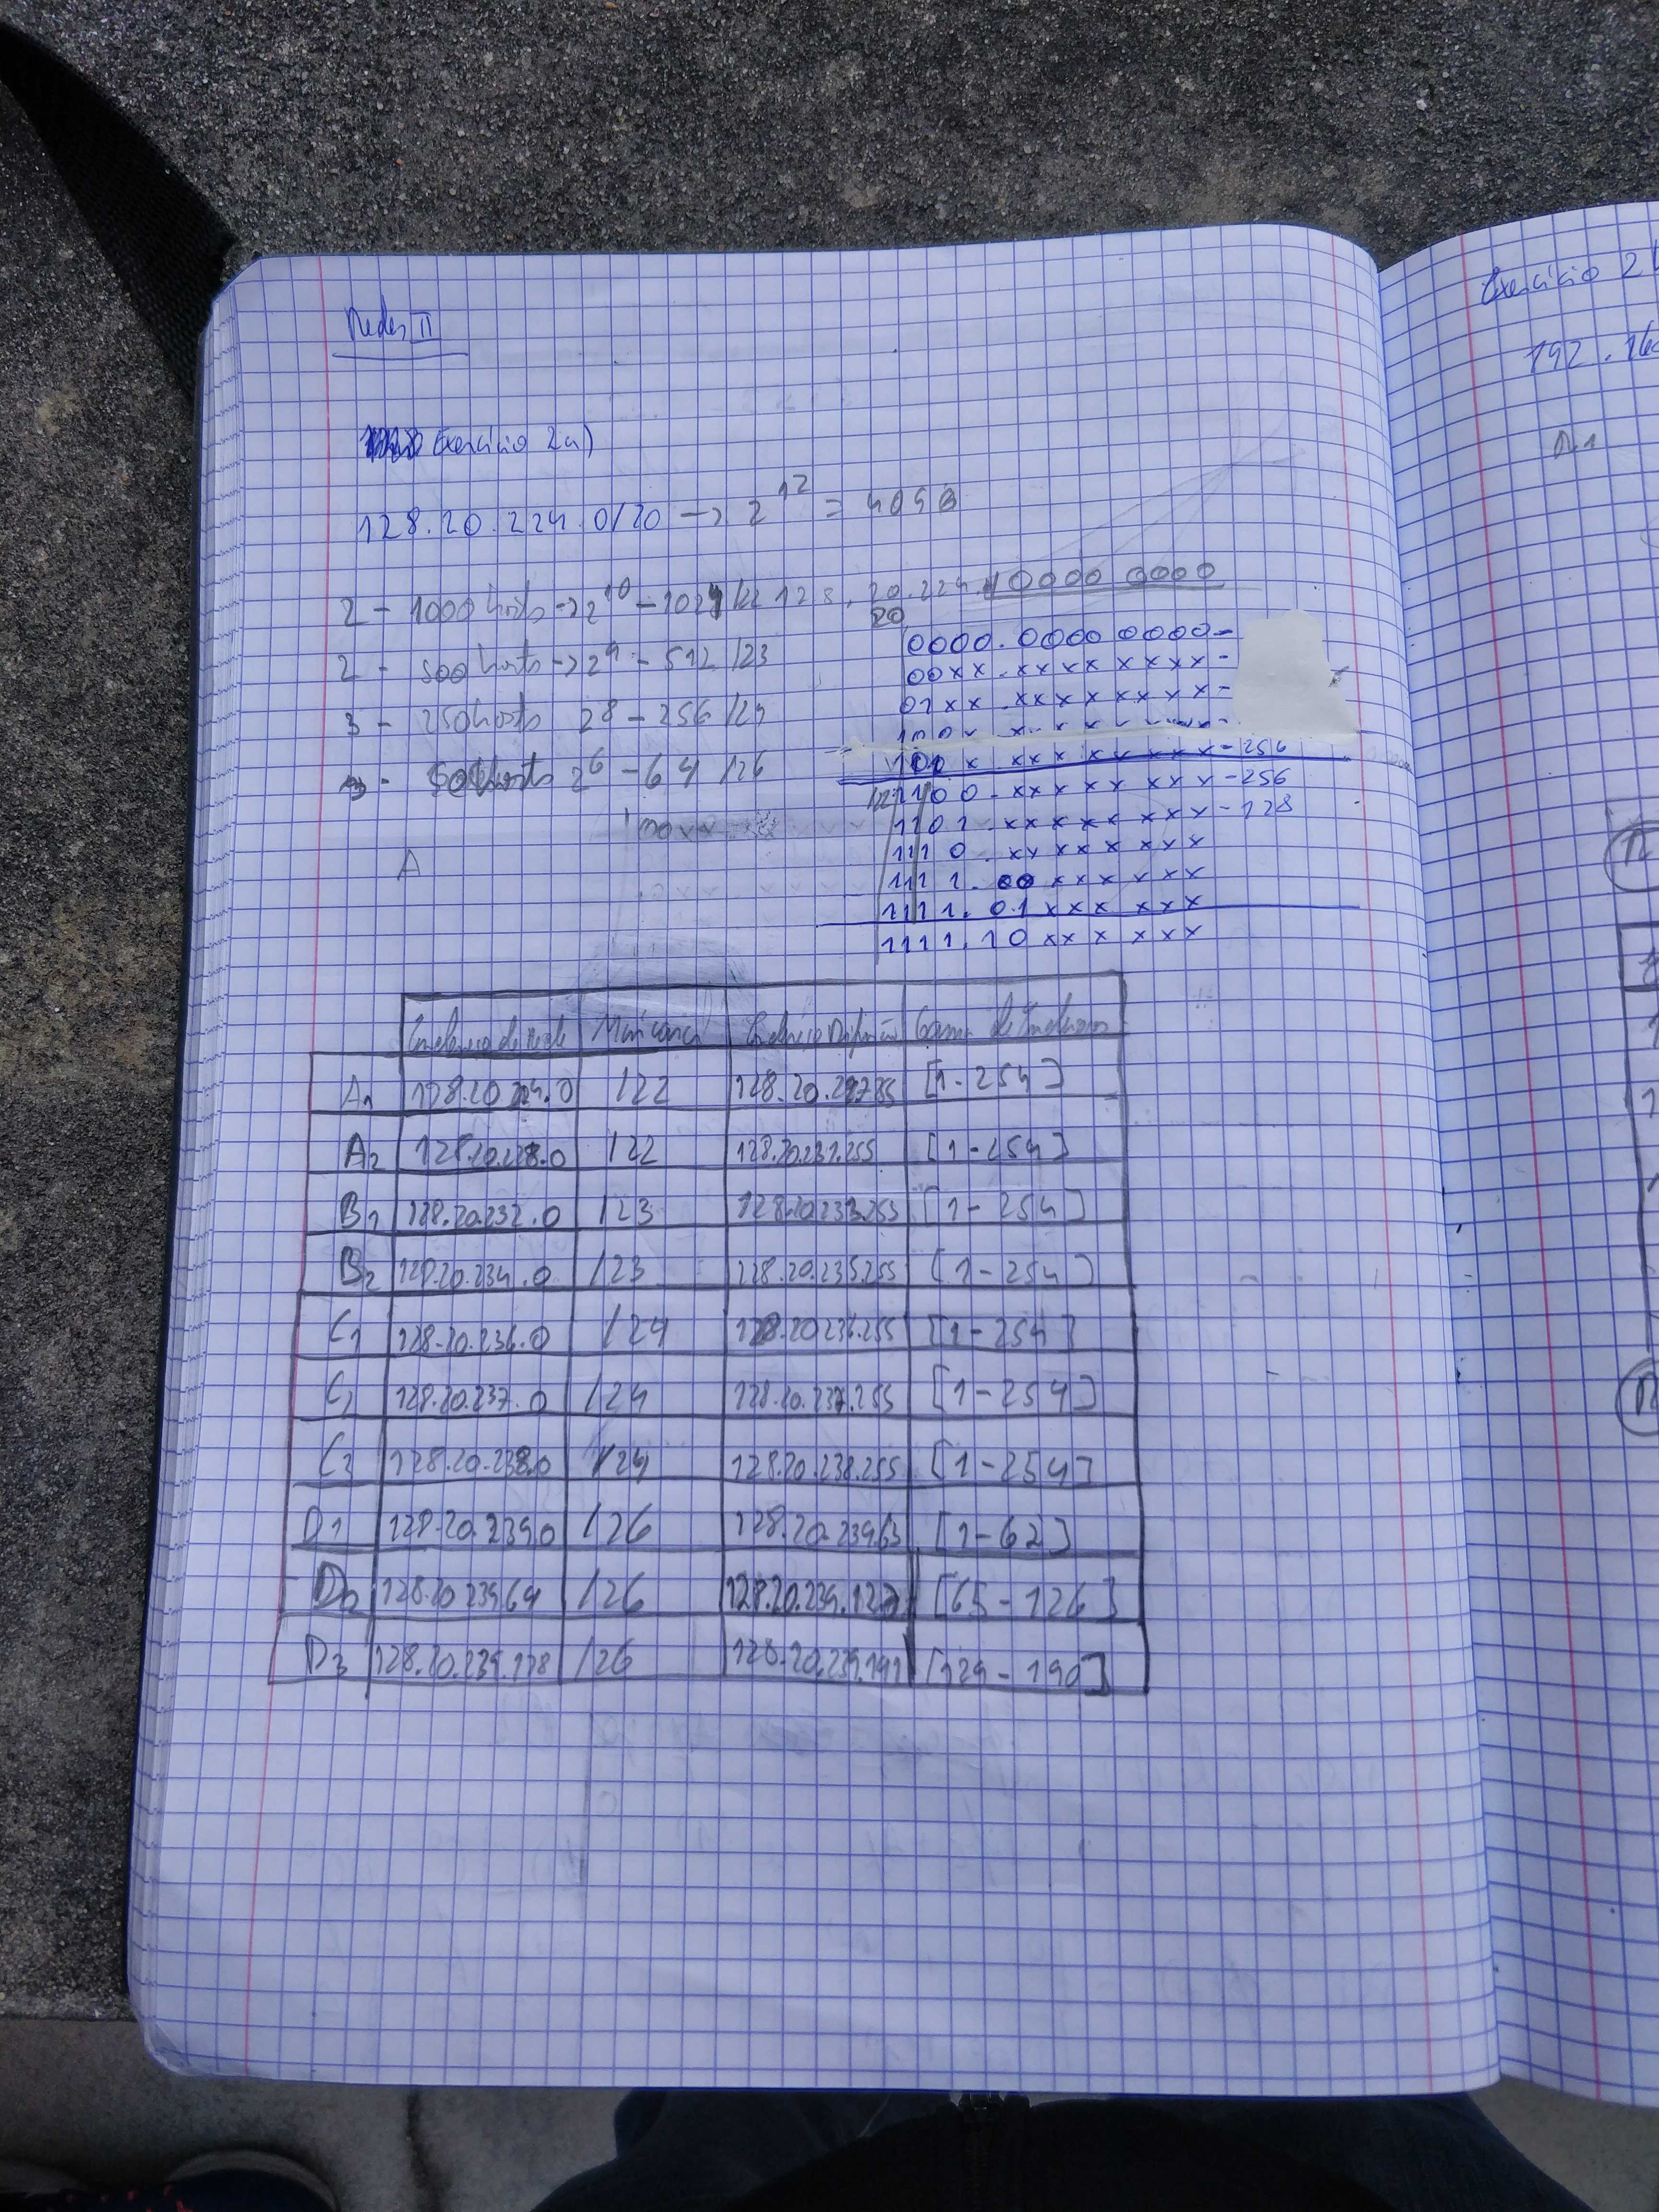 Redes II
Exercício 2a)
128.20.224.0/20 -> 2^12 = 4096
2 - 1000 hosts -> 2^10 - 1024 /22 128.20.224. 0000 0000
20
0000.0000 0000-
2 - 500 hosts -> 2^9 - 512 /23
00xx.xxxx xxxx-
3 - 250 hosts 2^8 - 256 /24
01xx.xxxx xxxx-
- 50 hosts 2^6 - 64 /26
x.xxxx xxxx-256
1100.xxxx xxxx-256
1101.xxxx xxxx-128
1110.xxxx xxxx
A
1111.00xx xxxx
1111.01xx xxxx
1111.10xx xxxx
Endereço de Rede Endereço Difusão Gama de Endereços
A1 128.20.224.0 /22 128.20.227.255 [1-254]
A2 128.20.228.0 /22 128.20.231.255 [1-254]
B1 128.20.232.0 /23 128.20.233.255 [1-254]
B2 128.20.234.0 /23 128.20.235.255 [1-254]
C1 128.20.236.0 /24 128.20.236.255 [1-254]
C2 128.20.237.0 /24 128.20.237.255 [1-254]
C3 128.20.238.0 /24 128.20.238.255 [1-254]
D1 128.20.239.0 /26 128.20.239.63 [1-62]
D2 128.20.239.64 /26 128.20.239.127 [65-126]
D3 128.20.239.128 /26 128.20.239.191 [129-190]
Exercício 2
192.16